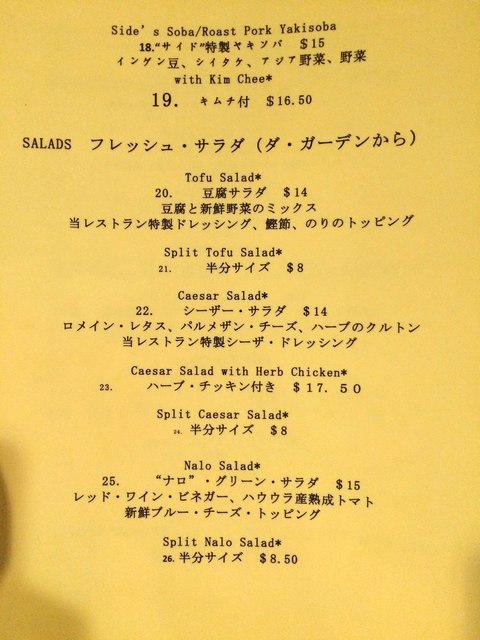 Side's Soba/Roast Pork Yakisoba
18.“サイド”特製ヤキソバ $15
インゲン豆、シイタケ、アジア野菜、野菜
with Kim Chee*
19. キムチ付 $16.50
SALADS フレッシュ・サラダ(ダ・ガーデンから)
Tofu Salad*
20. 豆腐サラダ $14
豆腐と新鮮野菜のミックス
当レストラン特製ドレッシング、鰹節、のりのトッピング
Split Tofu Salad*
21. 半分サイズ $8
Caesar Salad*
22. シーザー・サラダ $14
ロメイン・レタス、パルメザン・チーズ、ハーブのクルトン
当レストラン特製シーザ・ドレッシング
Caesar Salad with Herb Chicken*
23. ハーブ・チッキン付き $17.50
Split Caesar Salad*
24. 半分サイズ $8
Nalo Salad*
25. “ナロ”・グリーン・サラダ $15
レッド・ワイン・ビネガー、ハウウラ産熟成トマト
新鮮ブルー・チーズ・トッピング
Split Nalo Salad*
26. 半分サイズ $8.50